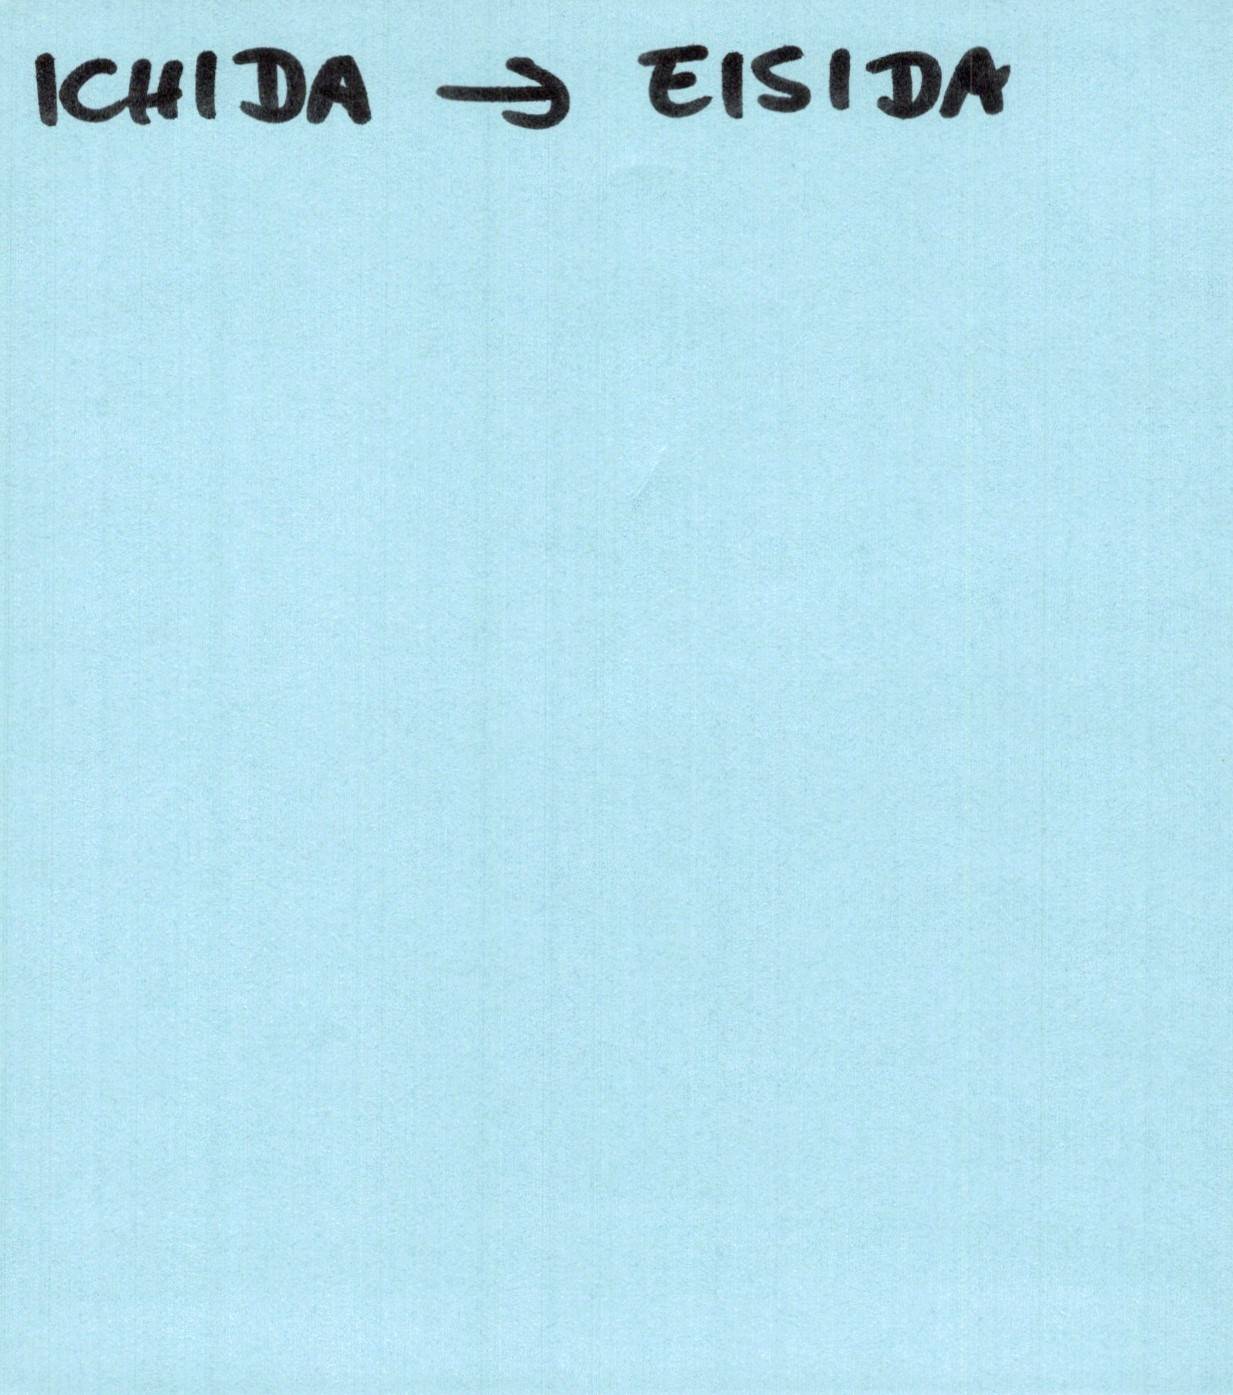 ICHIDA → EISIDA